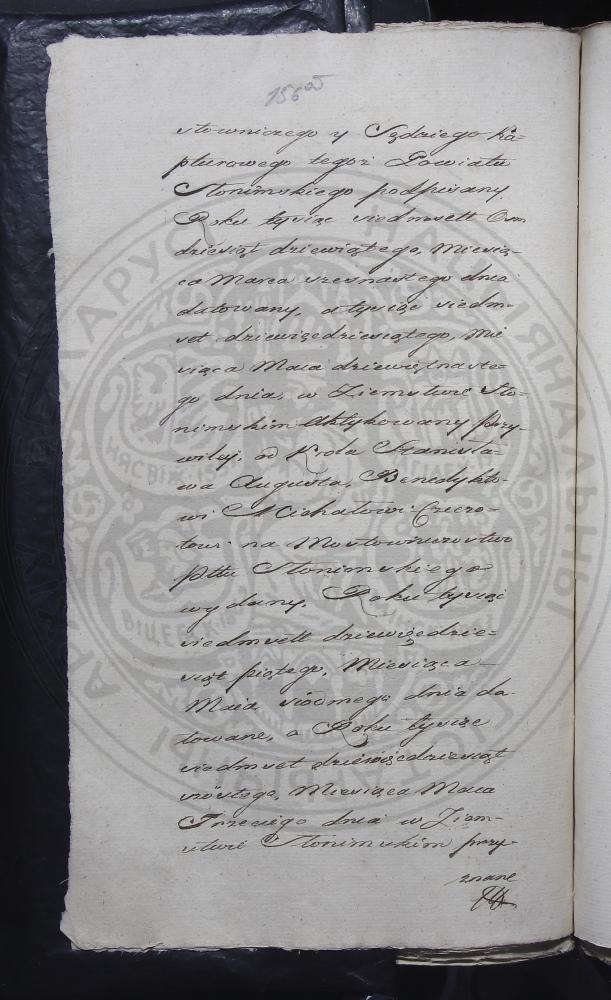 156 об
stowniczego y Sędziego Ka=
pturowego tegoż Powiatu
Słonimskiego podpisany.
Roku tysiąc siedmsett Ośm
dziesiąt dziewiątego, Miesią-
ca Marca szesnastego dnia
datowany, a tysiąc siedm-
set dziewięćdziesiątego, Mie
siąca Maia dziewiętnaste-
go dnia, w Ziemstwie Sło-
nimskim Aktykowany Przy-
wiley, od Krola Stanisła-
wa Augusta, Benedykto-
wi Michałowi
towi na Mostowniczostwo
Pttu Słonimskiego
wydany. Roku tysiąc
siedmsett dziewięćdzie-
siąt piątego, Miesiąca
Maia siódmego dnia da-
towane, a Roku tysiąc
siedmset dziewięćdziesiąt
szóstego, Miesiąca Maia
Trzeciego dnia w Ziem-
stwie Słonimskim przy-
znane